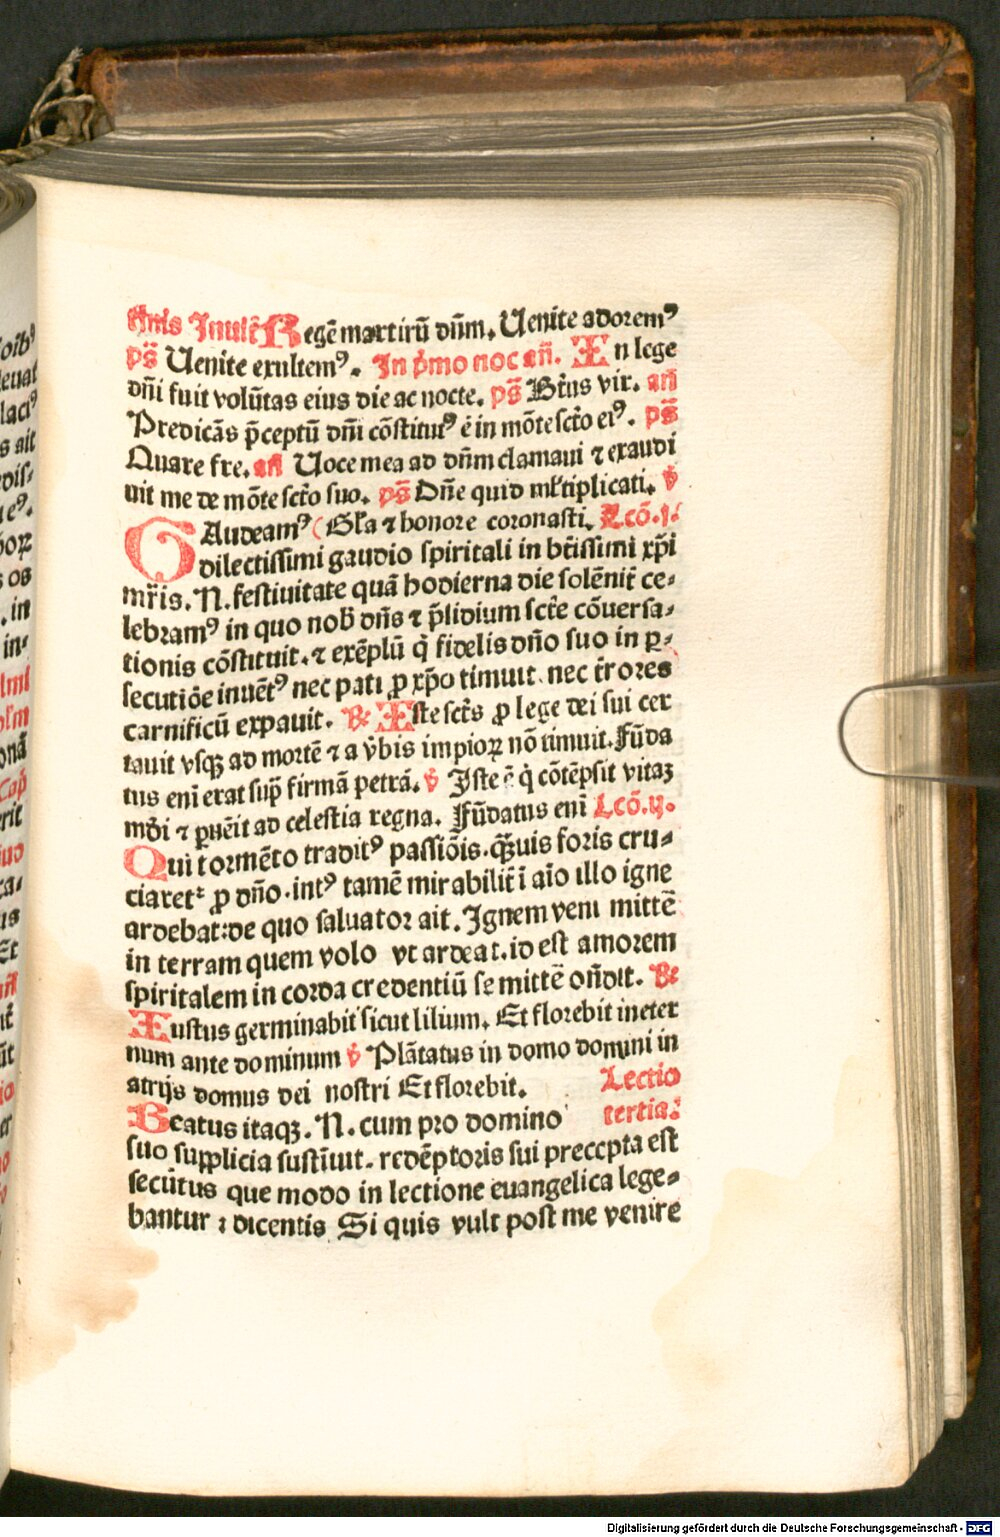 Regē martirū dn̄m. Uenite adorem⁹
ps̄ Uenite exultem⁹. In pͥmo noc an̄. In lege
dn̄i fuit volūtas eius die ac nocte. ps̄ Bt̄us vir. an̄
Predicās p̄ceptū dn̄i cōstitut⁹ ē in mōte sct̄o ei⁹. ps̄
Quare fre. an̄ Uoce mea ad dn̄m clamaui ⁊ exaudi
uit me de mōte sct̄o suo. ps̄ Dn̄e quid ml̄tiplicati. ℣
GAudeam⁹ ( Gl̄a ⁊ honore coronasti. Lcō.j.
dilectissimi gaudio spiritali in bt̄issimi xp̄i
mr̄is. N. festiuitate quā hodierna die solēnit̄ ce⸗
lebram⁹ in quo nob̄ dn̄s ⁊ p̄sidium sct̄e cōuersa⸗
tionis cōstituit. ⁊ exēplū q̇ fidelis dn̄o suo in ꝑ⸗
secutiōe inuēt⁹ nec pati ꝓ xp̄o timuit. nec t̄rores
carnificū expauit. ℞ Iste sct̄s ꝓ lege dei sui cer
tauit vsqꝫ ad mortē ⁊ a v̄bis impioꝝ nō timuit. Fūda
tus eni erat sup̄ firmā petrā. ℣ Iste ē q̇ cōtēpsit vitaꝫ
mūdi ⁊ ꝑuēit ad celestia regna. Fūdatus enī Lcō.ij.
Qui tormēto tradit⁹ passiōis. q̄uis foris cru⸗
ciaret᷑ ꝓ dn̄o. int⁹ tamē mirabilit̄ ī aīo illo igne
ardebat: de quo saluator ait. Ignem veni mittē
in terram quem volo vt ardeat. id est amorem
spiritalem in corda credentiū se mittē on̄dit. ℞
Iustus germinabit sicut lilium. Et florebit in eter
num ante dominum ℣ Plātatus in domo domini in
atrijs domus dei nostri Et florebit. Lectio
Beatus itaqꝫ. N. cum pro domino tertia.
suo supplicia sustīuit. redēptoris sui preccpta est
secutus que modo in lectione euangelica lege⸗
bantur ⁊ dicentis Si quis vult post me venire
Digitalisierung gefördert durch die Deutsche Forschungsgemeinschaft - DFG